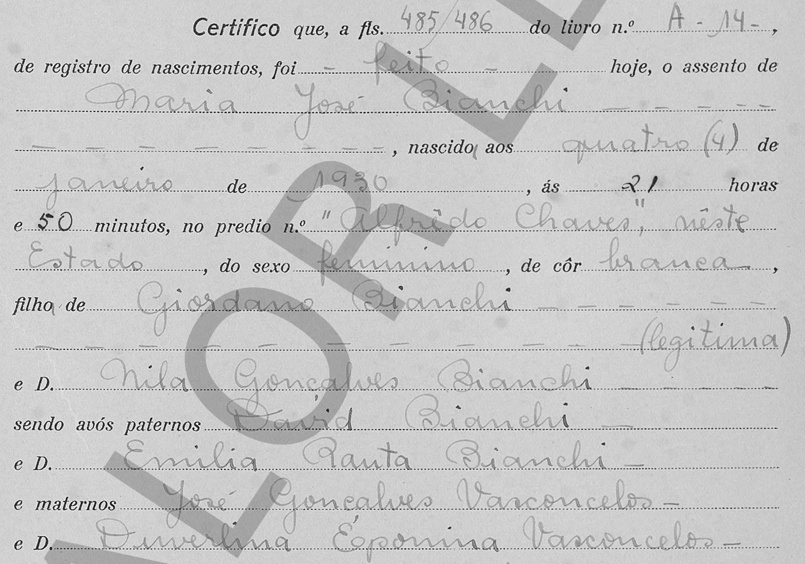 Certifico que, a fls. 485/486 do livro n.º A - 14 - ,
de registro de nascimentos, foi - feito - hoje, o assento de
Maria José Bianchi - - - - -
- - - - - - - - - , nascido aos quatro (4) de
janeiro de 1930 , ás 21 horas
e 50 minutos, no predio n.º "Alfrêdo Chaves", nêste
Estado , do sexo feminino , de côr branca ,
filha de Giordano Bianchi - - - - - -
- - - - - - - - - - (legitima)
e D. Nila Gonçalves Bianchi - - - - -
sendo avós paternos David Bianchi -
e D. Emilia Rauta Bianchi -
e maternos José Gonçalves Vasconcelos -
e D. Duverlina Éponina Vasconcelos -
ALOR LE